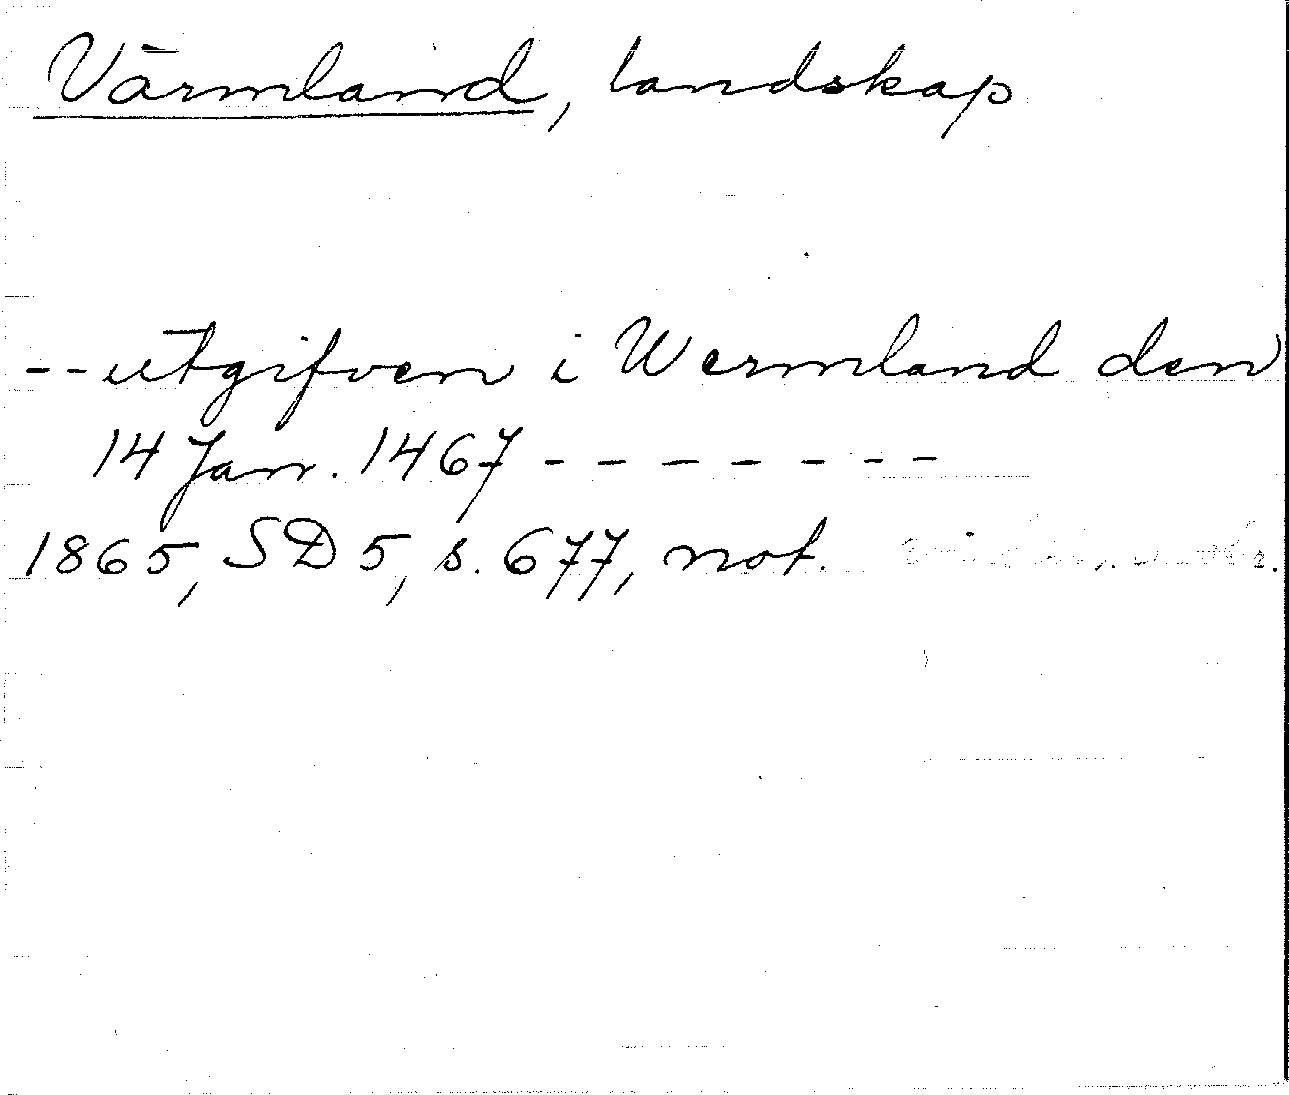 Värmland, landskap
--utgifven i Wermland den
14 Jan. 1467 -------
1865, SD 5, s. 677, not.